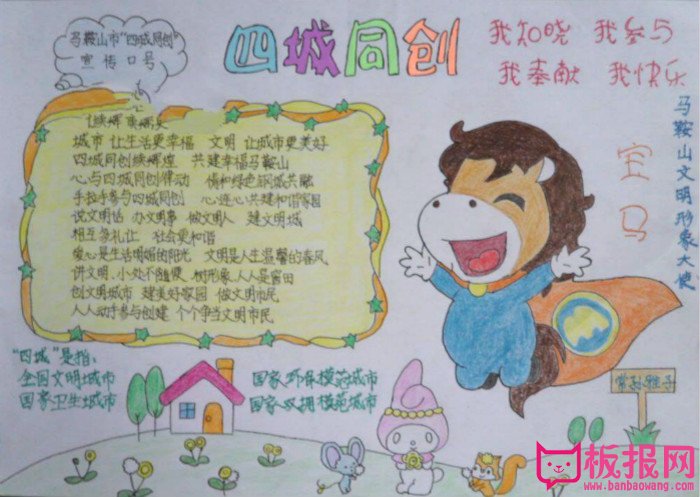 马鞍山市“四城同创”
宣传口号
四城同创
我知晓 我参与
我奉献 我快乐
马鞍山文明形象大使
宝马
城市 让生活更幸福 文明 让城市更美好
四城同创续辉煌 共建幸福马鞍山
心与四城同创律动 情和绿色钢城共融
手拉手参与四城同创 心连心共建和谐家园
说文明话 办文明事 做文明人 建文明城
相互多礼让 社会更和谐
爱心是生活明媚的阳光 文明是人生温馨的春风
讲文明,小处不随便 树形象,人人是窗口
创文明城市 建美好家园 做文明市民
人人动手参与创建 个个争当文明市民
“四城”是指:
全国文明城市 国家环保模范城市
国家卫生城市 国家双拥模范城市
板报网
www.banbaowang.com